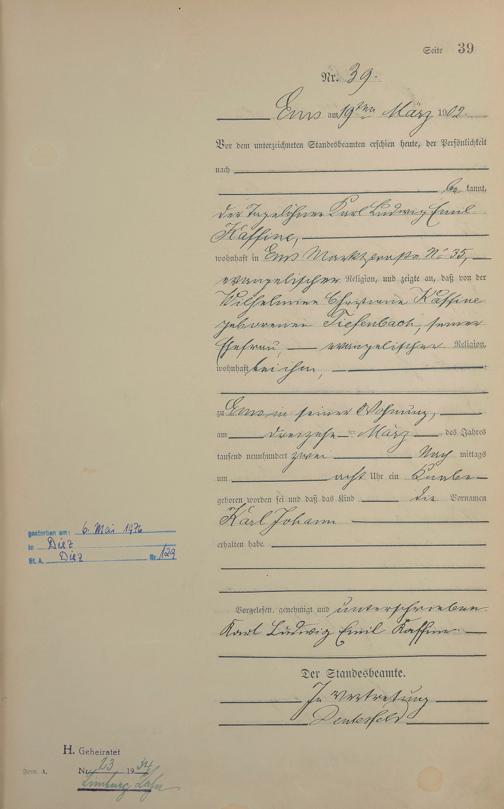 Seite 39
Nr. 39.
Ems am 19ten März 1902
Vor dem unterzeichneten Standesbeamten erschien heute, der Persönlichkeit
nach
be kannt,
der Tagelöhner Karl Ludwig Emil
Kaffine,
wohnhaft in Ems Marktstraße No 35,
evangelischer Religion, und zeigte an, daß von der
Wilhelmine Christiane Kaffine
geborenen Tiefenbach, seiner
Ehefrau, evangelischer Religion,
wohnhaft bei ihm,
zu Ems in seiner Wohnung,
am dreizehn März des Jahres
tausend neunhundert zwei Nach mittags
um acht Uhr ein Knabe
geboren worden sei und daß das Kind die Vornamen
Karl Johann
erhalten habe.
Vorgelesen, genehmigt und unterschrieben
Karl Ludwig Emil Kaffine
Der Standesbeamte.
In Vertretung
gestorben am: 6. Mai 1976
in Diez
St. A. Diez Nr. 129
H. Geheiratet
Nr. 23 1934
Limburg Lahn
Form. A.